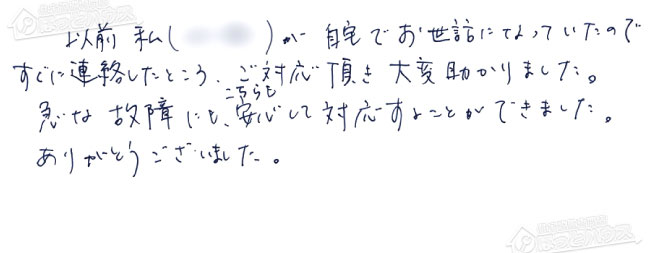 以前 私(        )が 自宅でお世話になっていたので
すぐに連絡したところ、ご対応頂き 大変助かりました。
急な故障にも、こちらも安心して対応することができました。
ありがとうございました。